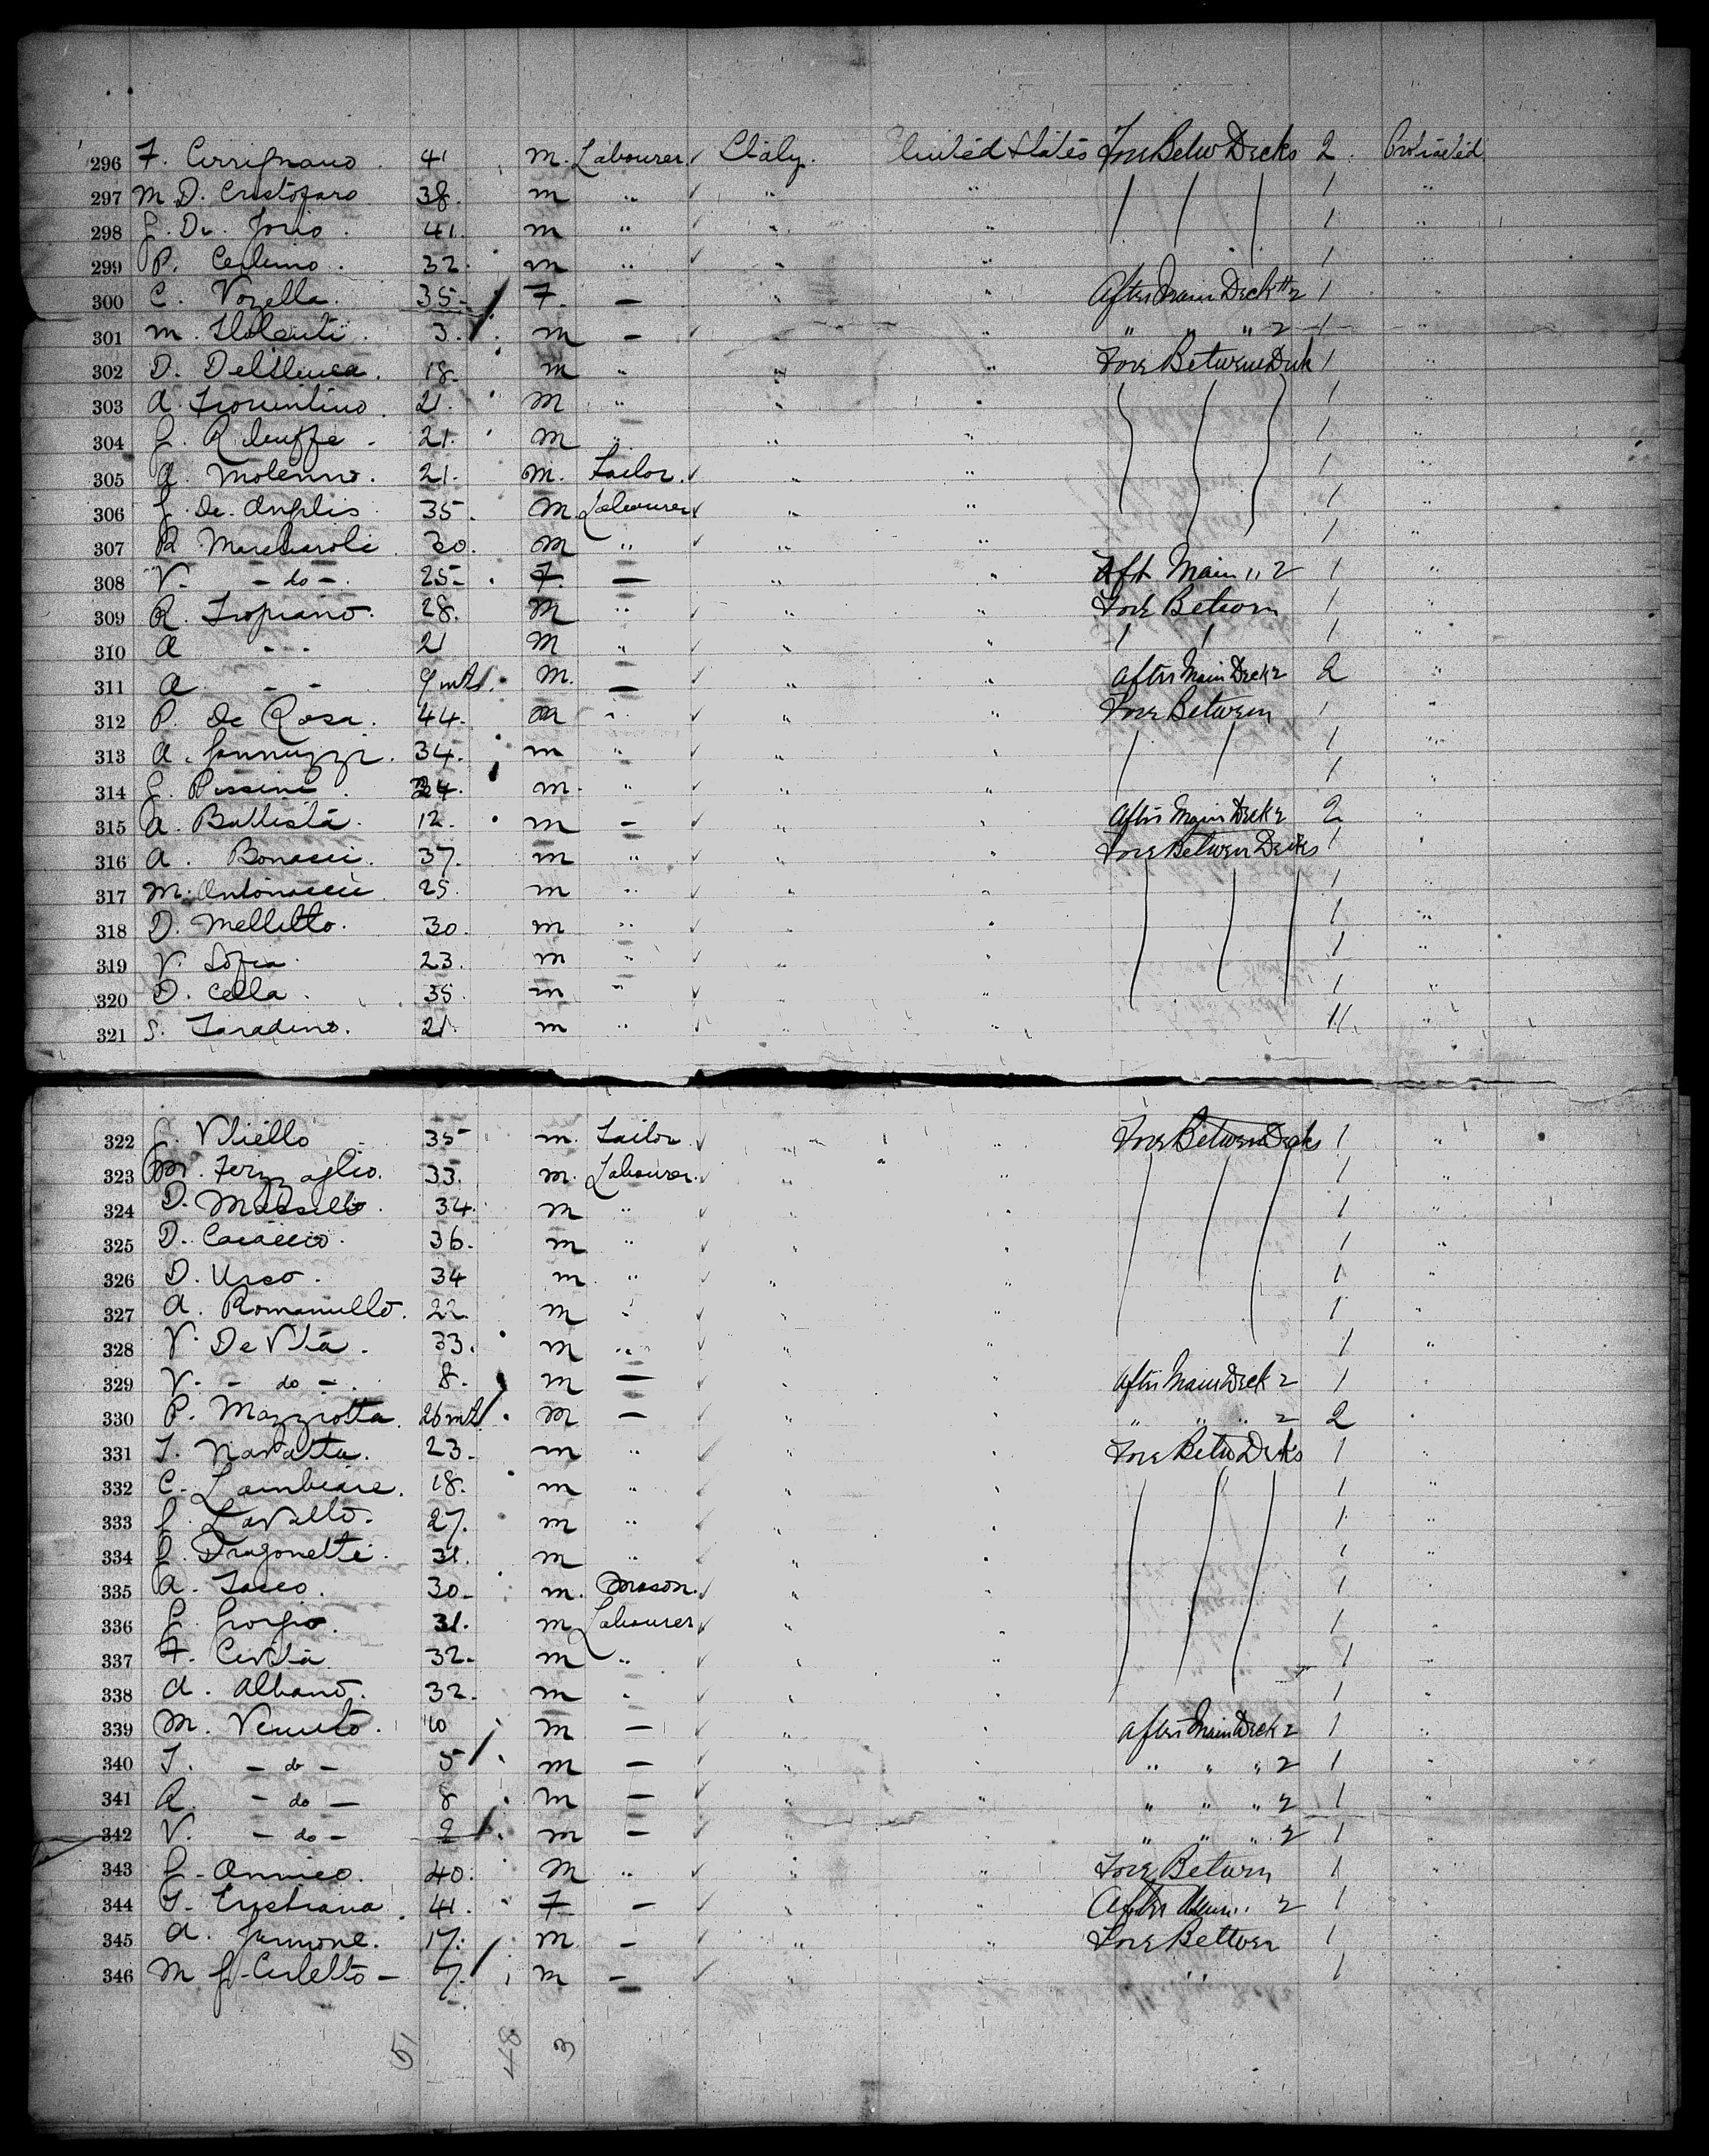 296 F. Cirrignano . 41 m. Labourer ✓ Italy. United States Fore Betw Decks 2. Protracted
297 M. D. Cristofaro 38. m " ✓ " " / / / 1 "
298 G. Di. Jorio . 41. m " " " 1 "
299 P. Cerlino . 32. m " ✓ " " 1 "
300 C. Vozella . 35 F. — " " After Main Deck " 2 1 "
301 m. 3. m — ✓ " " " " " 2 1 "
302 D. 18. m " " " Fore Between Deck 1 "
303 A. Fiorentino . 21. M " " " 1 "
304 G. 21. m " " " 1 "
305 A. Molenno . 21. m. Tailor. ✓ " " 1 "
306 G. De. Anglis 35. m. Labourer ✓ " " 1 "
307 R. Marchiaroli . 30. m " ✓ " " 1 "
308 V. — do — . 25 . F. — " " Aft Main " 2 1 "
309 R. Tropiano . 28. M " ✓ " " Fore Between 1 "
310 A - - 21 M " ✓ " " / / 1 "
311 A - - 9 mts . M. — ✓ " " After Main Deck 2 2 "
312 P. De Rosa . 44. m " ✓ " " Fore Between 1 "
313 A. Jannuzzi . 34. m " ✓ " " / / 1 "
314 G. Pissini . 24. m. " ✓ " " 1 "
315 A. Battista . 12. m — ✓ " " After Main Deck 2 2 "
316 A. Bonacci . 37. m " ✓ " " Fore Between Decks 1 "
317 M. Antonacci . 25. m " ✓ " " 1 "
318 D. Melletto . 30. m " ✓ " " 1 "
319 V. Sofia . 23. m " ✓ " " 1 "
320 D. Cella . 35. m " ✓ " " 1 "
321 S. Taradino . 21. m " ✓ " " 1 "
322 Vliello 35 m. Tailor ✓ " " Fore Between Decks 1 "
323 33. m. Labourer. ✓ " " 1 "
324 D. Massello . 34. m " ✓ " 1 "
325 D. Cacaccio . 36. m " ✓ " " 1 "
326 D. Urso . 34 m " ✓ " " 1 "
327 A. Romanullo . 22. m " ✓ " " 1 "
328 V. De Vita . 33. m " ✓ " " 1 "
329 V. - do - . 8. m — ✓ " " After Main Deck 2 1 "
330 P. Mazziotta . 26 mts . m — ✓ " " " " " 2 2 "
331 T. Navatta . 23. m " ✓ " " Fore Betw Decks 1 "
332 C. Lambiase . 18. m " ✓ " " 1 "
333 G. Lavallo . 27. m " ✓ " " 1 "
334 G. Dragonetti . 31. m " ✓ " " 1 "
335 A. Sacco . 30. m. Mason. ✓ " " 1 "
336 G. Giorgio . 31. m Labourer ✓ " " 1 "
337 F. Civita 32. m " ✓ " " 1 "
338 A. Albano . 32. m " ✓ " " 1 "
339 M. Venuto . 10 m — ✓ " " After Main Deck 2 1 "
340 T. - do - 5 m — ✓ " " " " " 2 1 "
341 R. - do — 8 m — ✓ " " " " " 2 1 "
342 V. - do - 2 m — ✓ " " " " " 2 1 "
343 G. Annico . 40. M " ✓ " " Fore Between 1 "
344 T. Cristiana . 41. F — ✓ " " After Main " 2 1 "
345 A. Jannone . 17. m — ✓ " " Fore Between 1 "
346 M G. Cerletto - 7. m — ✓ " " 1 "
51 48 3